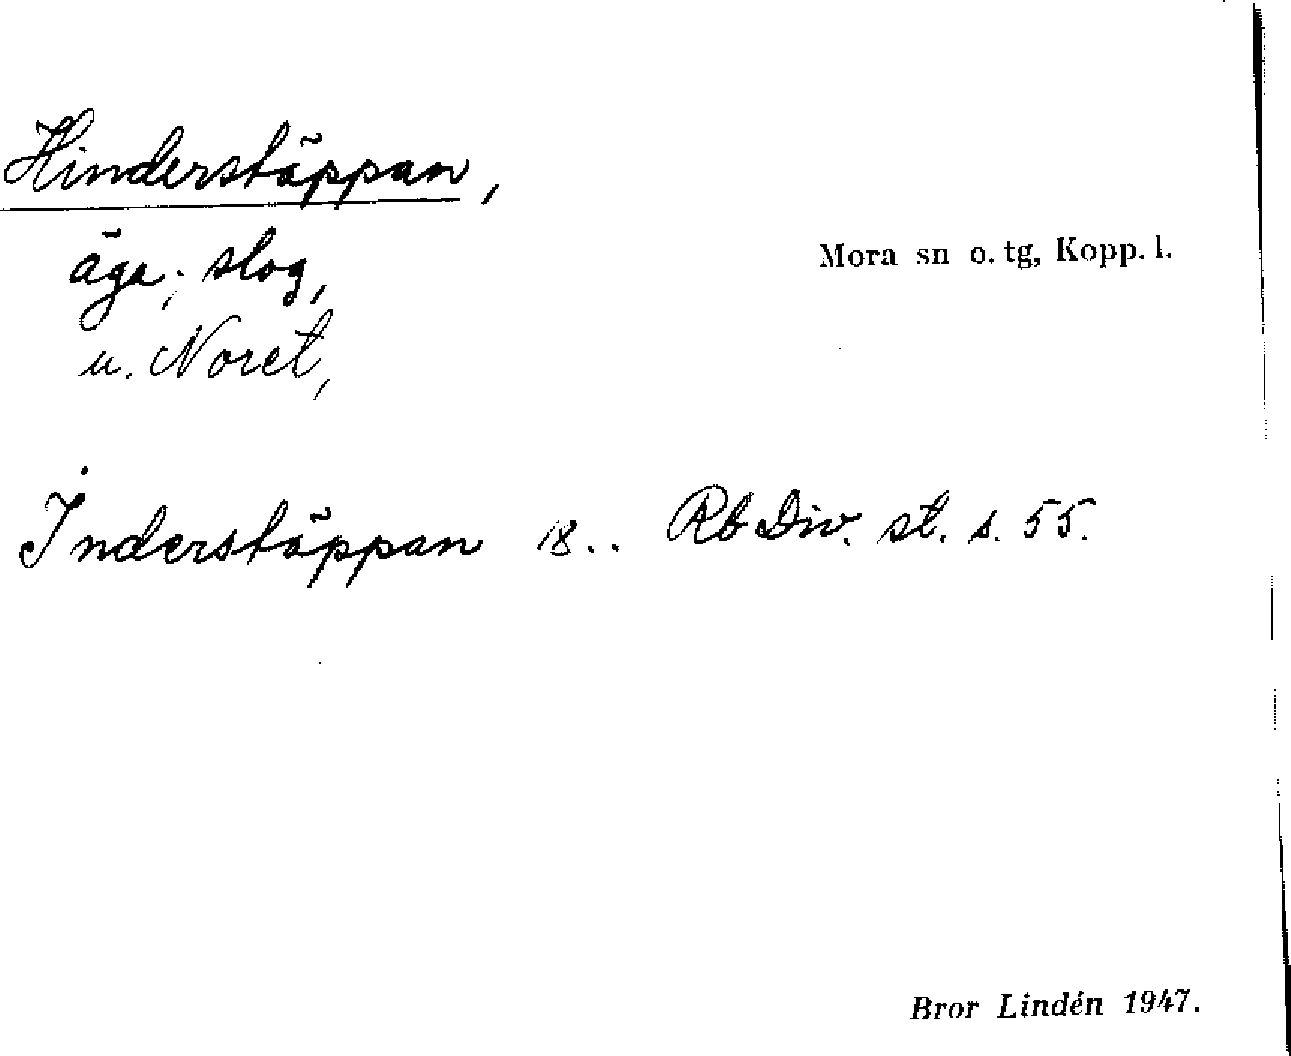 Hinderstäppan,
äga; slog,
Mora sn o. tg, Kopp. l.
u. Noret,
Inderstäppan 18.. Rb Div. st. s. 55.
Bror Lindén 1947.